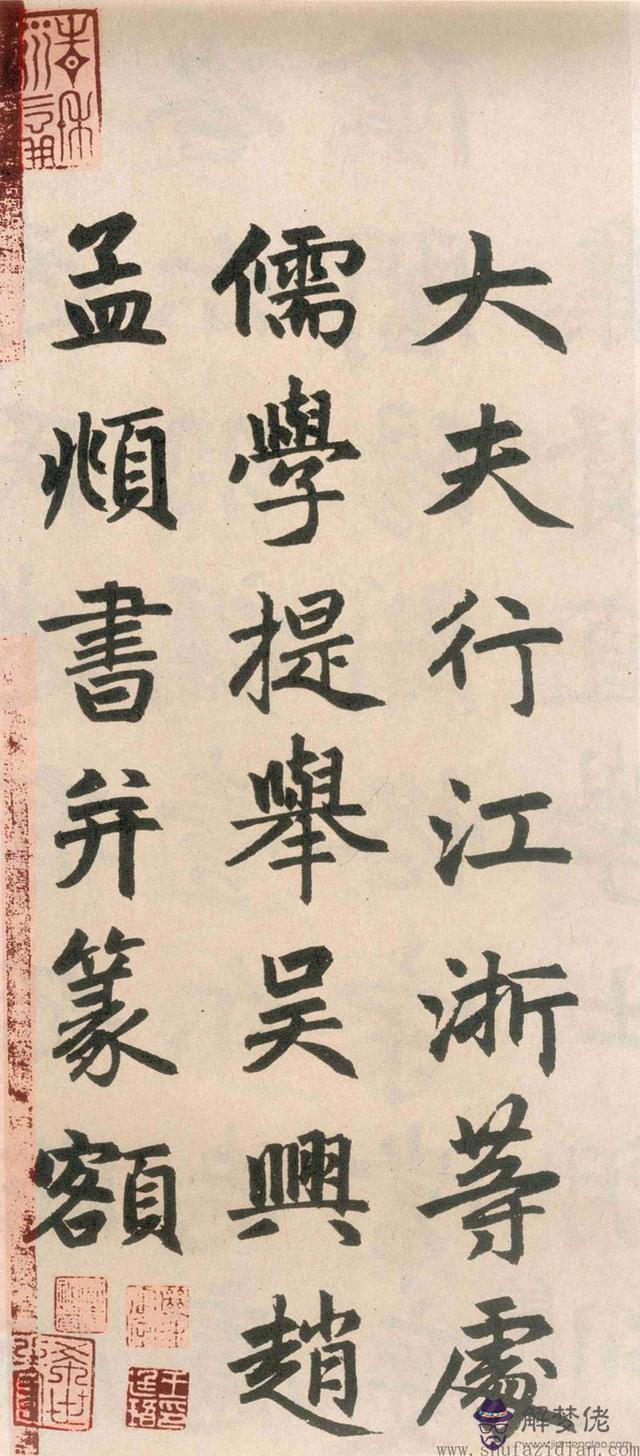 大夫行江浙等處
儒學提舉吴興趙
孟頫書并篆額
解梦佬
www.jiemengiao.com
www.shufazidian.com